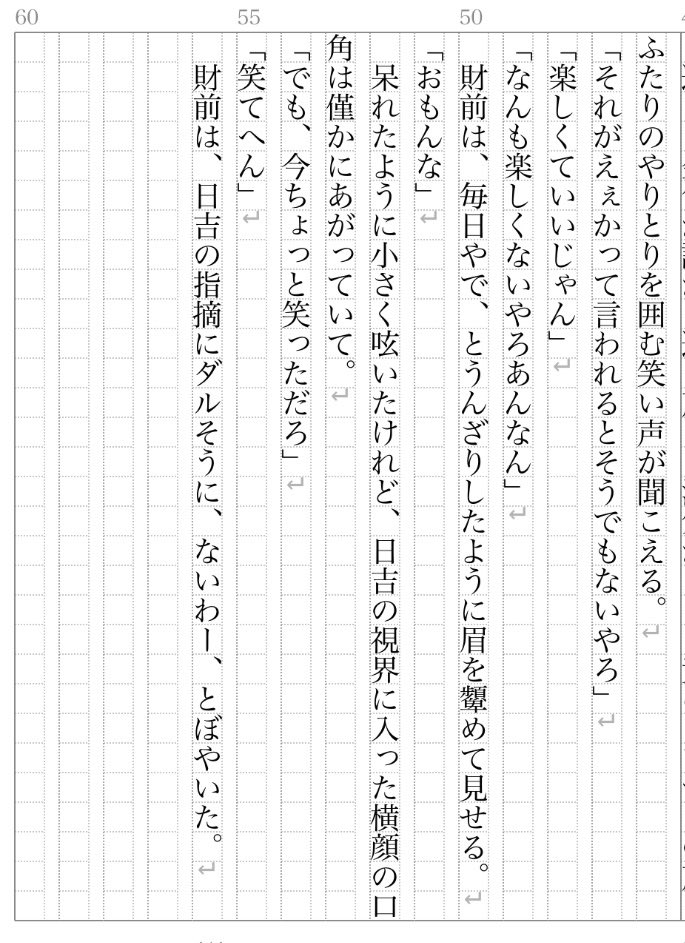 60
55
50
ふたりのやりとりを囲む笑い声が聞こえる。
「それがえぇかって言われるとそうでもないやろ」
「楽しくていいじゃん」
「なんも楽しくないやろあんなん」
　財前は、毎日やで、とうんざりしたように眉を顰めて見せる。
「おもんな」
　呆れたように小さく呟いたけれど、日吉の視界に入った横顔の口
角は僅かにあがっていて。
「でも、今ちょっと笑っただろ」
「笑てへん」
　財前は、日吉の指摘にダルそうに、ないわー、とぼやいた。